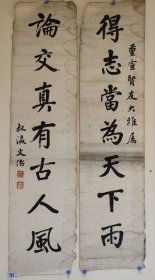 得志當為天下雨
重宣賢友大雅屬
論交真有古人風
叔瀛文